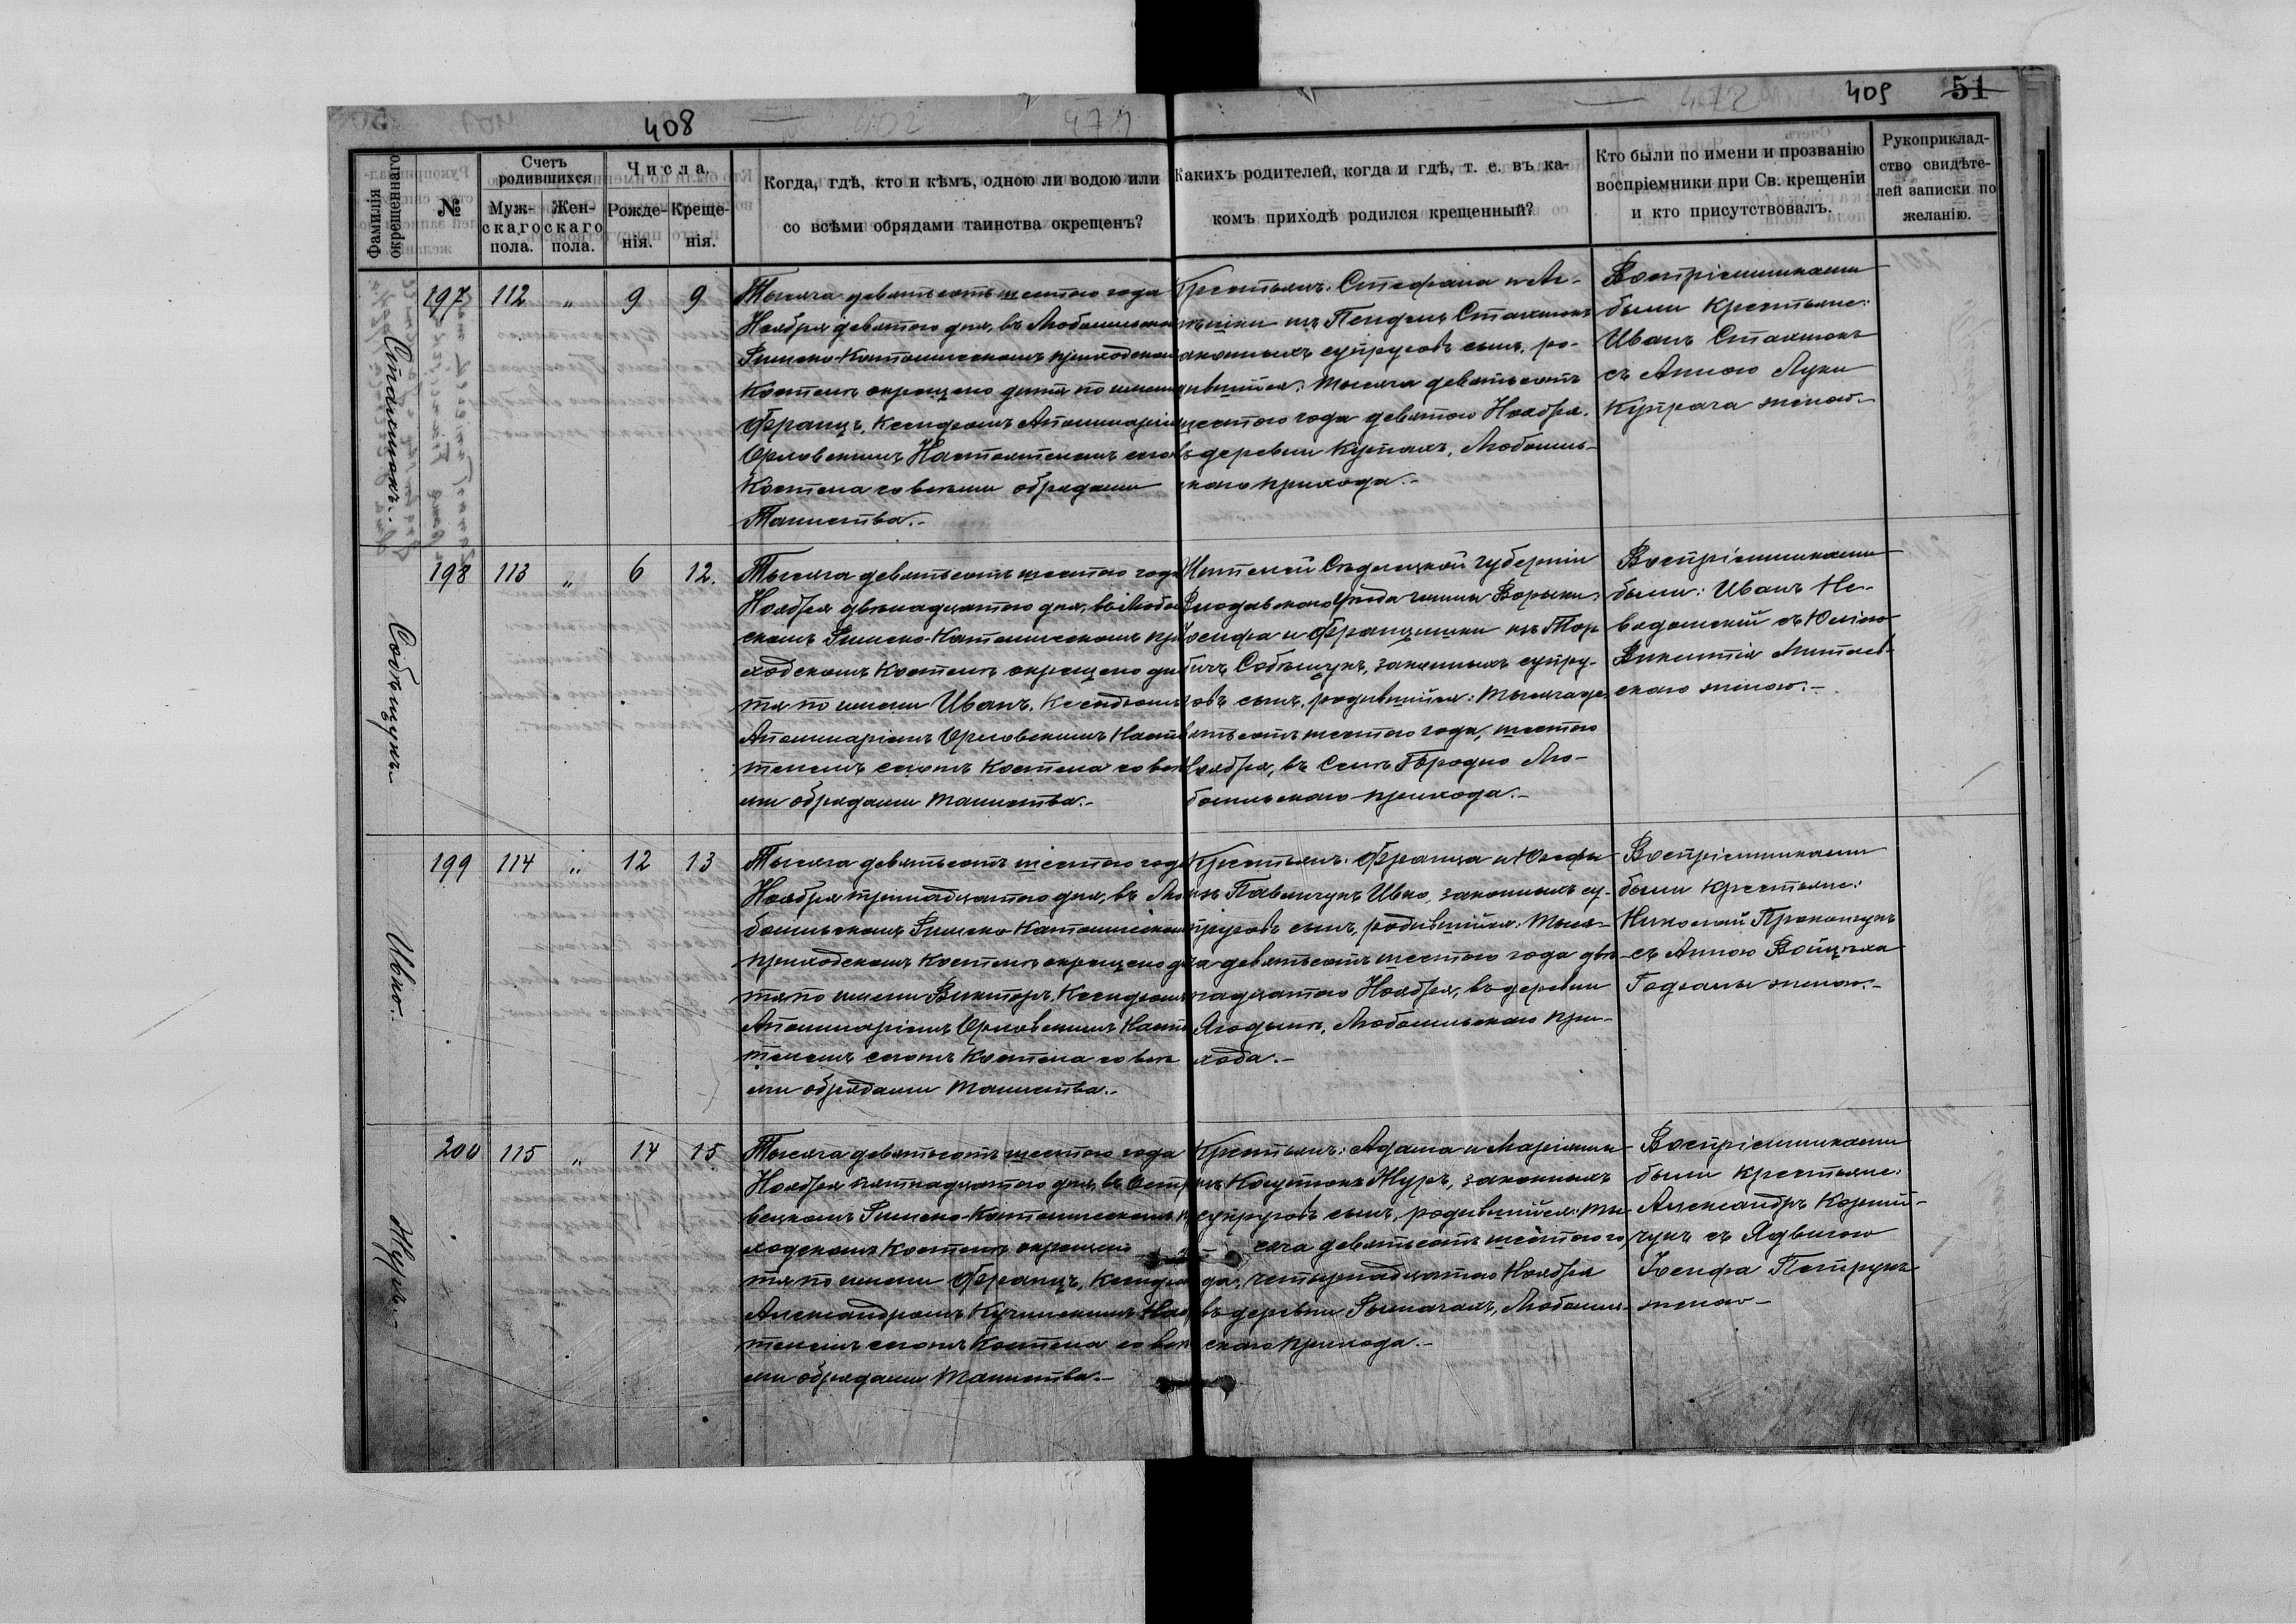 408
409
51
Фамилія окрещеннаго.
№
Счетъ родившихся
Муж-
скаго
пола.
Жен-
скаго
пола.
Числа.
Рожде-
нія.
Креще-
нія.
Когда, гдѣ, кто и кѣмъ, одною ли водою или
со всѣми обрядами таинства окрещенъ?
Какихъ родителей, когда и гдѣ, т. е. въ ка-
комъ приходѣ родился крещенный?
Кто были по имени и прозванію
воспріемники при Св. крещеніи
и кто присутствовалъ.
Рукоприклад-
ство свидѣте-
лей записки по
желанію.
Стахнюкъ.
197 112 „ 9 9
Тысяча девятьсотъ шестого года
Ноября девятого дня, въ
Римско-Католическомъ приходском
Костелѣ окрещено дитя по имени
Францъ, Ксендзомъ Аполинаріем
Орловскимъ Настоятелемъ сего
Костела со всѣми обрядами
Таинства.
Крестьянъ: Стефана и
изъ Стахнюкъ
законныхъ супруговъ сынъ, ро-
дившійся: тысяча девятьсотъ
шестого года девятого Ноября,
въ деревни Кутахъ, Любомль-
скаго прихода.
Воспріемниками
были Крестьяне:
Иванъ Стахнюкъ
съ Анною Луки
Купрача женою.
Собѣщукъ
198 113 „ 6 12.
Тысяча девятьсотъ шестого года
Ноября двѣнадцатого дня, въ Любом
скомъ Римско-Католическомъ при
ходскомъ Костелѣ окрещено ди
тя по имени Иванъ, Ксендзомъ
Аполинаріемъ Орловскимъ Насто
телемъ сегожъ Костела со всѣ
ми обрядами таинства.
Жителей Сѣдлецкой Губерніи
Влодавскаго Уѣзда гмины
Іосифа и Францишки изъ
Собѣщукъ, законныхъ супру-
говъ сынъ, родившійся: тысяча де
вятьсотъ шестого года, шестого
Ноября, въ Селѣ Городно Лю-
бомльскаго прихода.
Воспріемниками
были: Иванъ Не-
вядомскій съ Юліею
Викентія
скаго женою.
Ивко.
199 114 „ 12 13
Тысяча девятьсотъ шестого года
Ноября тринадцатого дня, въ Лю
бомльскомъ Римско-Католическом
приходскомъ Костелѣ окрещено ди
тя по имени Викторъ, Ксендзомъ
Аполинаріемъ Орловскимъ Насто
телемъ сегожъ Костела со всѣ
ми обрядами таинства.
Крестьянъ: Франца и Юзефы
изъ Павличукъ Ивко, законныхъ су-
пруговъ сынъ, родившійся: тыся-
ча девятьсотъ шестого года двѣ-
надцатого Ноября, въ деревни
Ягодынѣ, Любомльскаго при-
хода.
Воспріемниками
были Крестьяне:
Николай Прокопчукъ
съ Анною Войцѣха
женою.
Журъ.
200 115 „ 14 15
Тысяча девятьсотъ шестого года
Ноября пятнадцатого дня, въ
вецкомъ Римско-Католическомъ п
ходскомъ Костелѣ окрещено
тя по имени Францъ, Ксендзо
Александромъ Кучинскимъ Нас
телемъ сегожъ Костела со всѣ
ми обрядами таинства.
Крестьянъ: Адама и Маріанны
изъ Журъ, законныхъ
супруговъ сынъ, родившійся: ты-
сяча девятьсотъ шестого го
да, четырнадцатого Ноября
въ деревни Рымачахъ, Любомль-
скаго прихода.
Воспріемниками
были Крестьяне:
Александръ Корней-
чукъ съ Ядвигою
Іосифа Петрукъ
женою